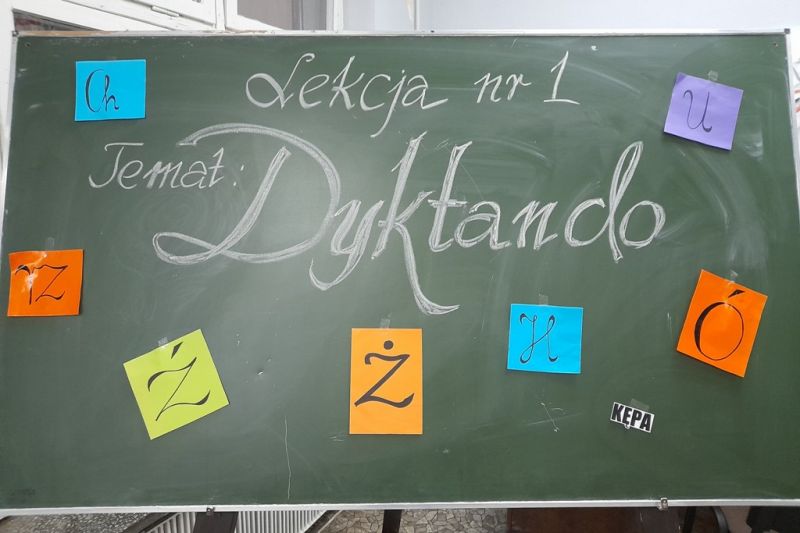 Lekcja nr 1
Ch
U
Temat: Dyktando
rz
Ź
Ż
H
Ó
KĘPA